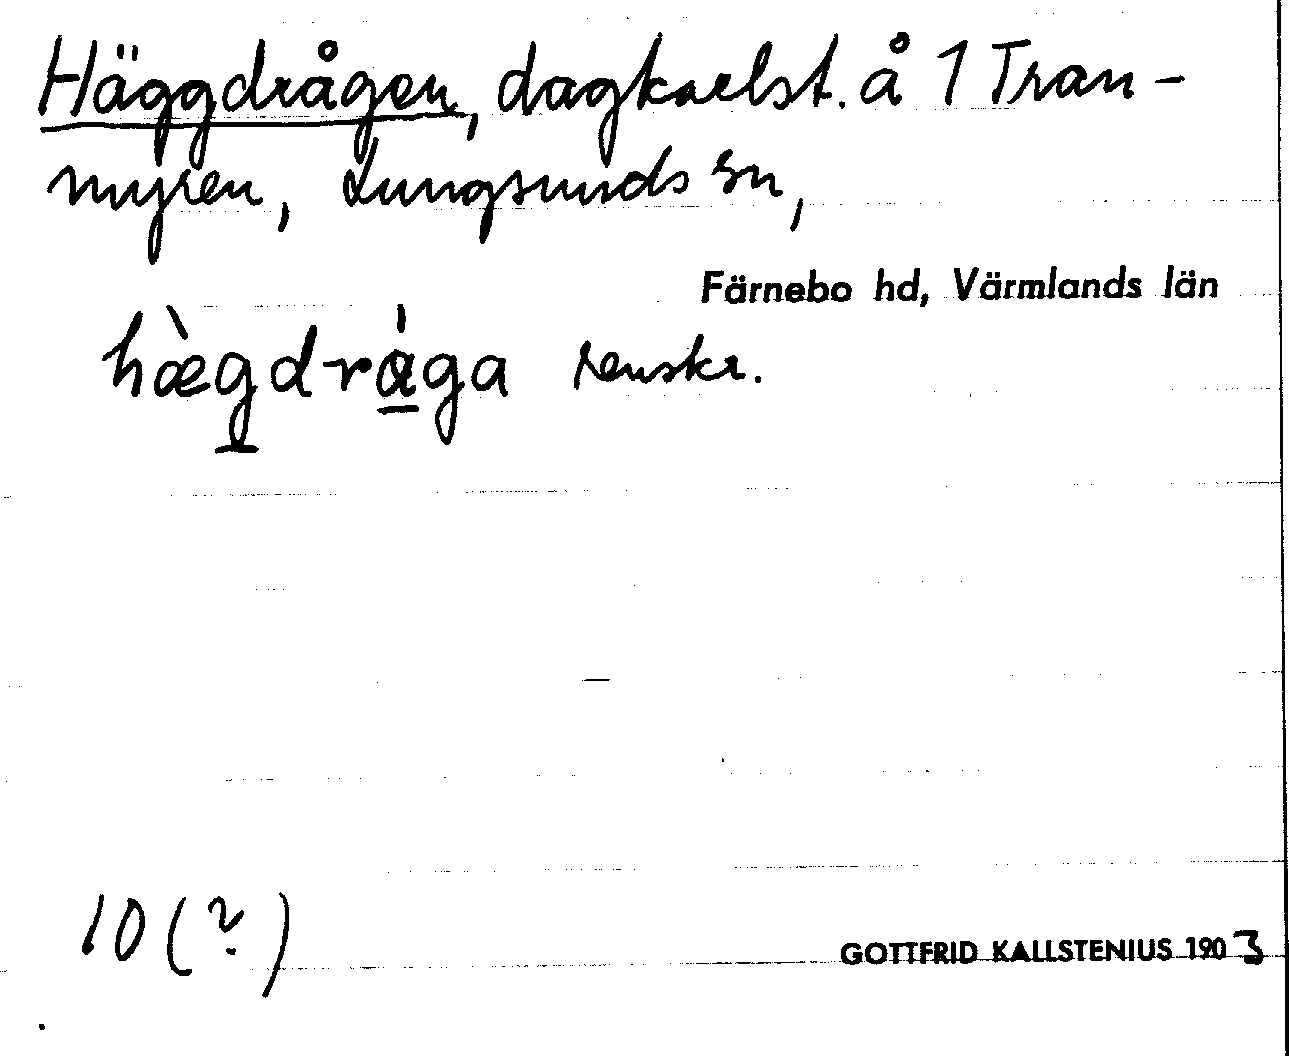 Häggdrågen, dagkarlst. å 1 Tran-
myren, Lungsunds sn,
Färnebo hd, Värmlands län
hæ̀gdrága renskr.
10 (?)
GOTTFRID KALLSTENIUS 1903